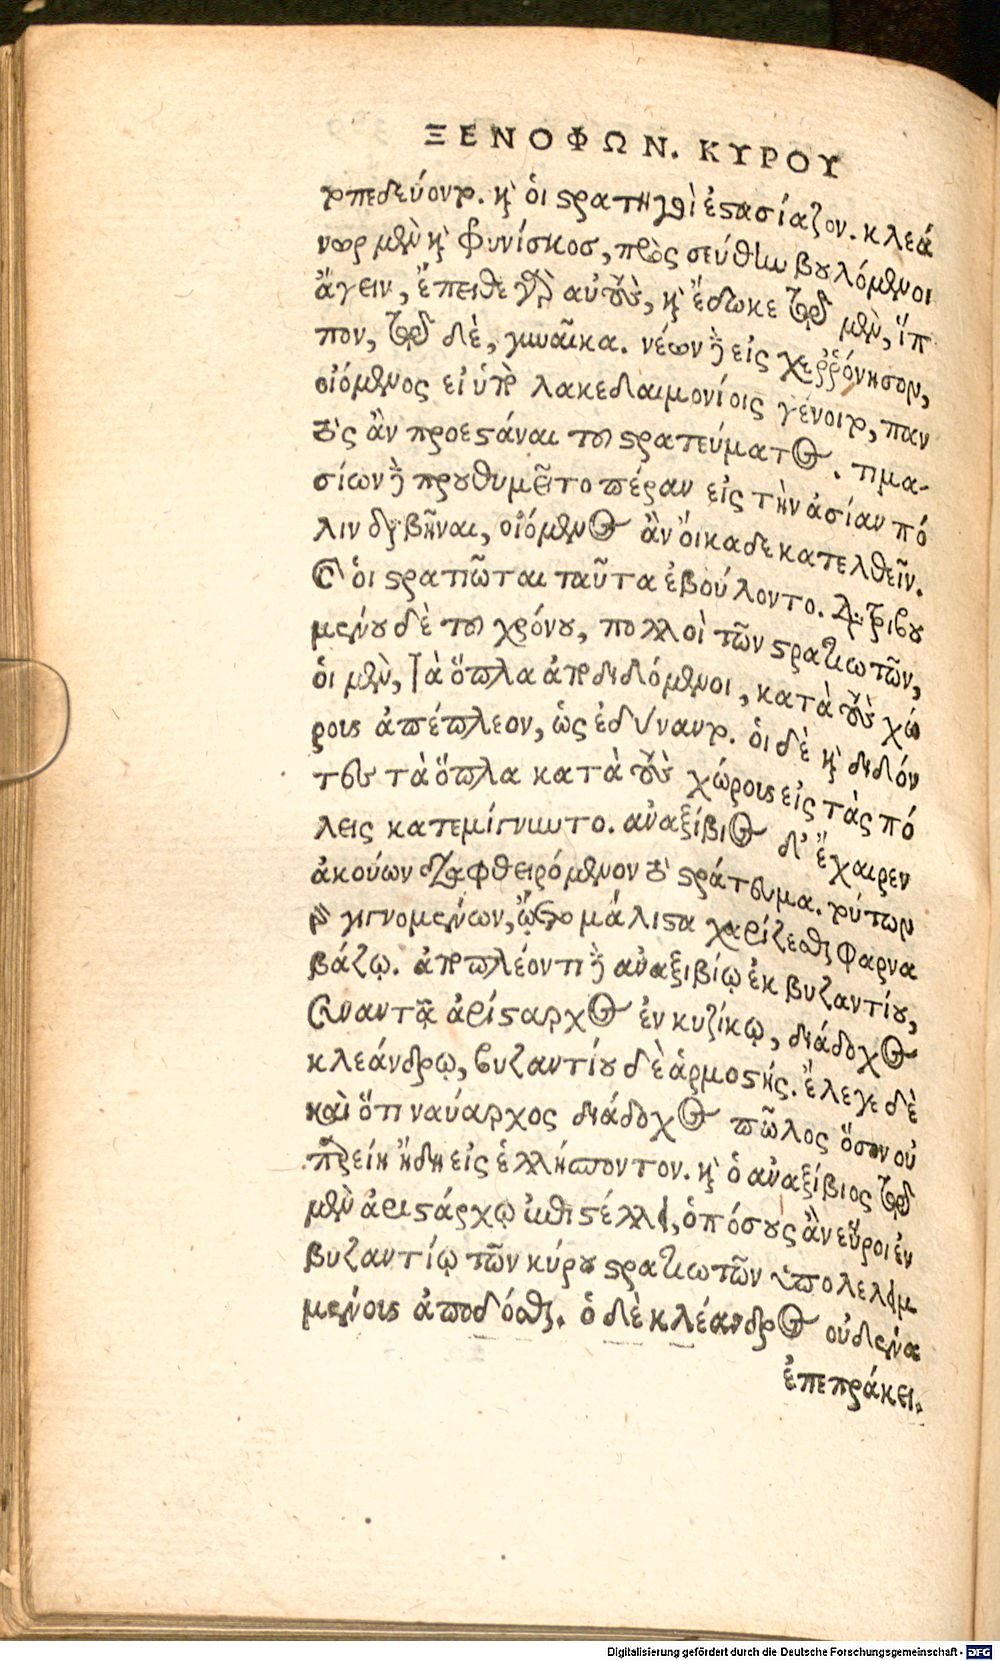 ΞΕΝΟΦΩΝ. ΚΥΡΟΥ
τοπεδεύοντο. καὶ οἱ στρατηγοὶ ἐστασίαζον. κλεά
νωρ μὲν καὶ φρυνίσκος, πρὸς σεύθην βουλόμενοι
ἄγειν, ἔπειθε γὰρ αὐτοὺς, καὶ ἔδωκε τῷ μὲν, ἵπ
πον, τῷ δὲ, γυναῖκα. νέων δὲ εἰς χερρόνησον,
οἰόμενος εἰ ὑπὸ λακεδαιμονίοις γένοιτο, παν
τὸς ἂν προεστάναι τοῦ στρατεύματος. τιμα-
σίων δὲ προυθυμεῖτο πέραν εἰς τὴν ἀσίαν πά
λιν διαβῆναι, οἰόμενος ἂν οἴκαδε κατελθεῖν.
καὶ οἱ στρατιῶται ταῦτα ἐβούλοντο. διατριβο
μένου δὲ τοῦ χρόνου, πολλοὶ τῶν στρατιωτῶν,
οἱ μὲν, τὰ ὅπλα ἀποδιδόμενοι, κατὰ τοὺς χώ
ρους ἀπέπλεον, ὡς ἐδύναντο. οἱ δὲ καὶ διδόν
τες τὰ ὅπλα κατὰ τοὺς χώρους εἰς τὰς πό
λεις κατεμίγνυντο. ἀναξίβιος δ' ἔχαιρεν
ἀκούων διαφθειρόμενον τὸ στράτευμα. τούτων
γὰρ γιγνομένων, ᾤετο μάλιστα χαρίζεσθαι φαρνα
βάζῳ. ἀποπλέοντι δὲ ἀναξιβίῳ ἐκ βυζαντίου,
συναντᾷ ἀρίσταρχος ἐν κυζίκῳ, διάδοχος
κλεάνδρῳ, βυζαντίου δὲ ἁρμοστής. ἔλεγε δὲ
καὶ ὅτι ναύαρχος διάδοχος πῶλος ὅσον οὐ
παρείη ἤδη εἰς ἑλλήσποντον. καὶ ὁ ἀναξίβιος τῷ
μὲν ἀριστάρχῳ ἐπιστέλλει, ὁπόσους ἂν εὕροι ἐν
βυζαντίῳ τῶν κύρου στρατιωτῶν ὑπολελειμ
μένους ἀποδόσθαι. ὁ δὲ κλέανδρος οὐδένα
ἐπεπράκει.
Digitalisierung gefördert durch die Deutsche Forschungsgemeinschaft - DFG